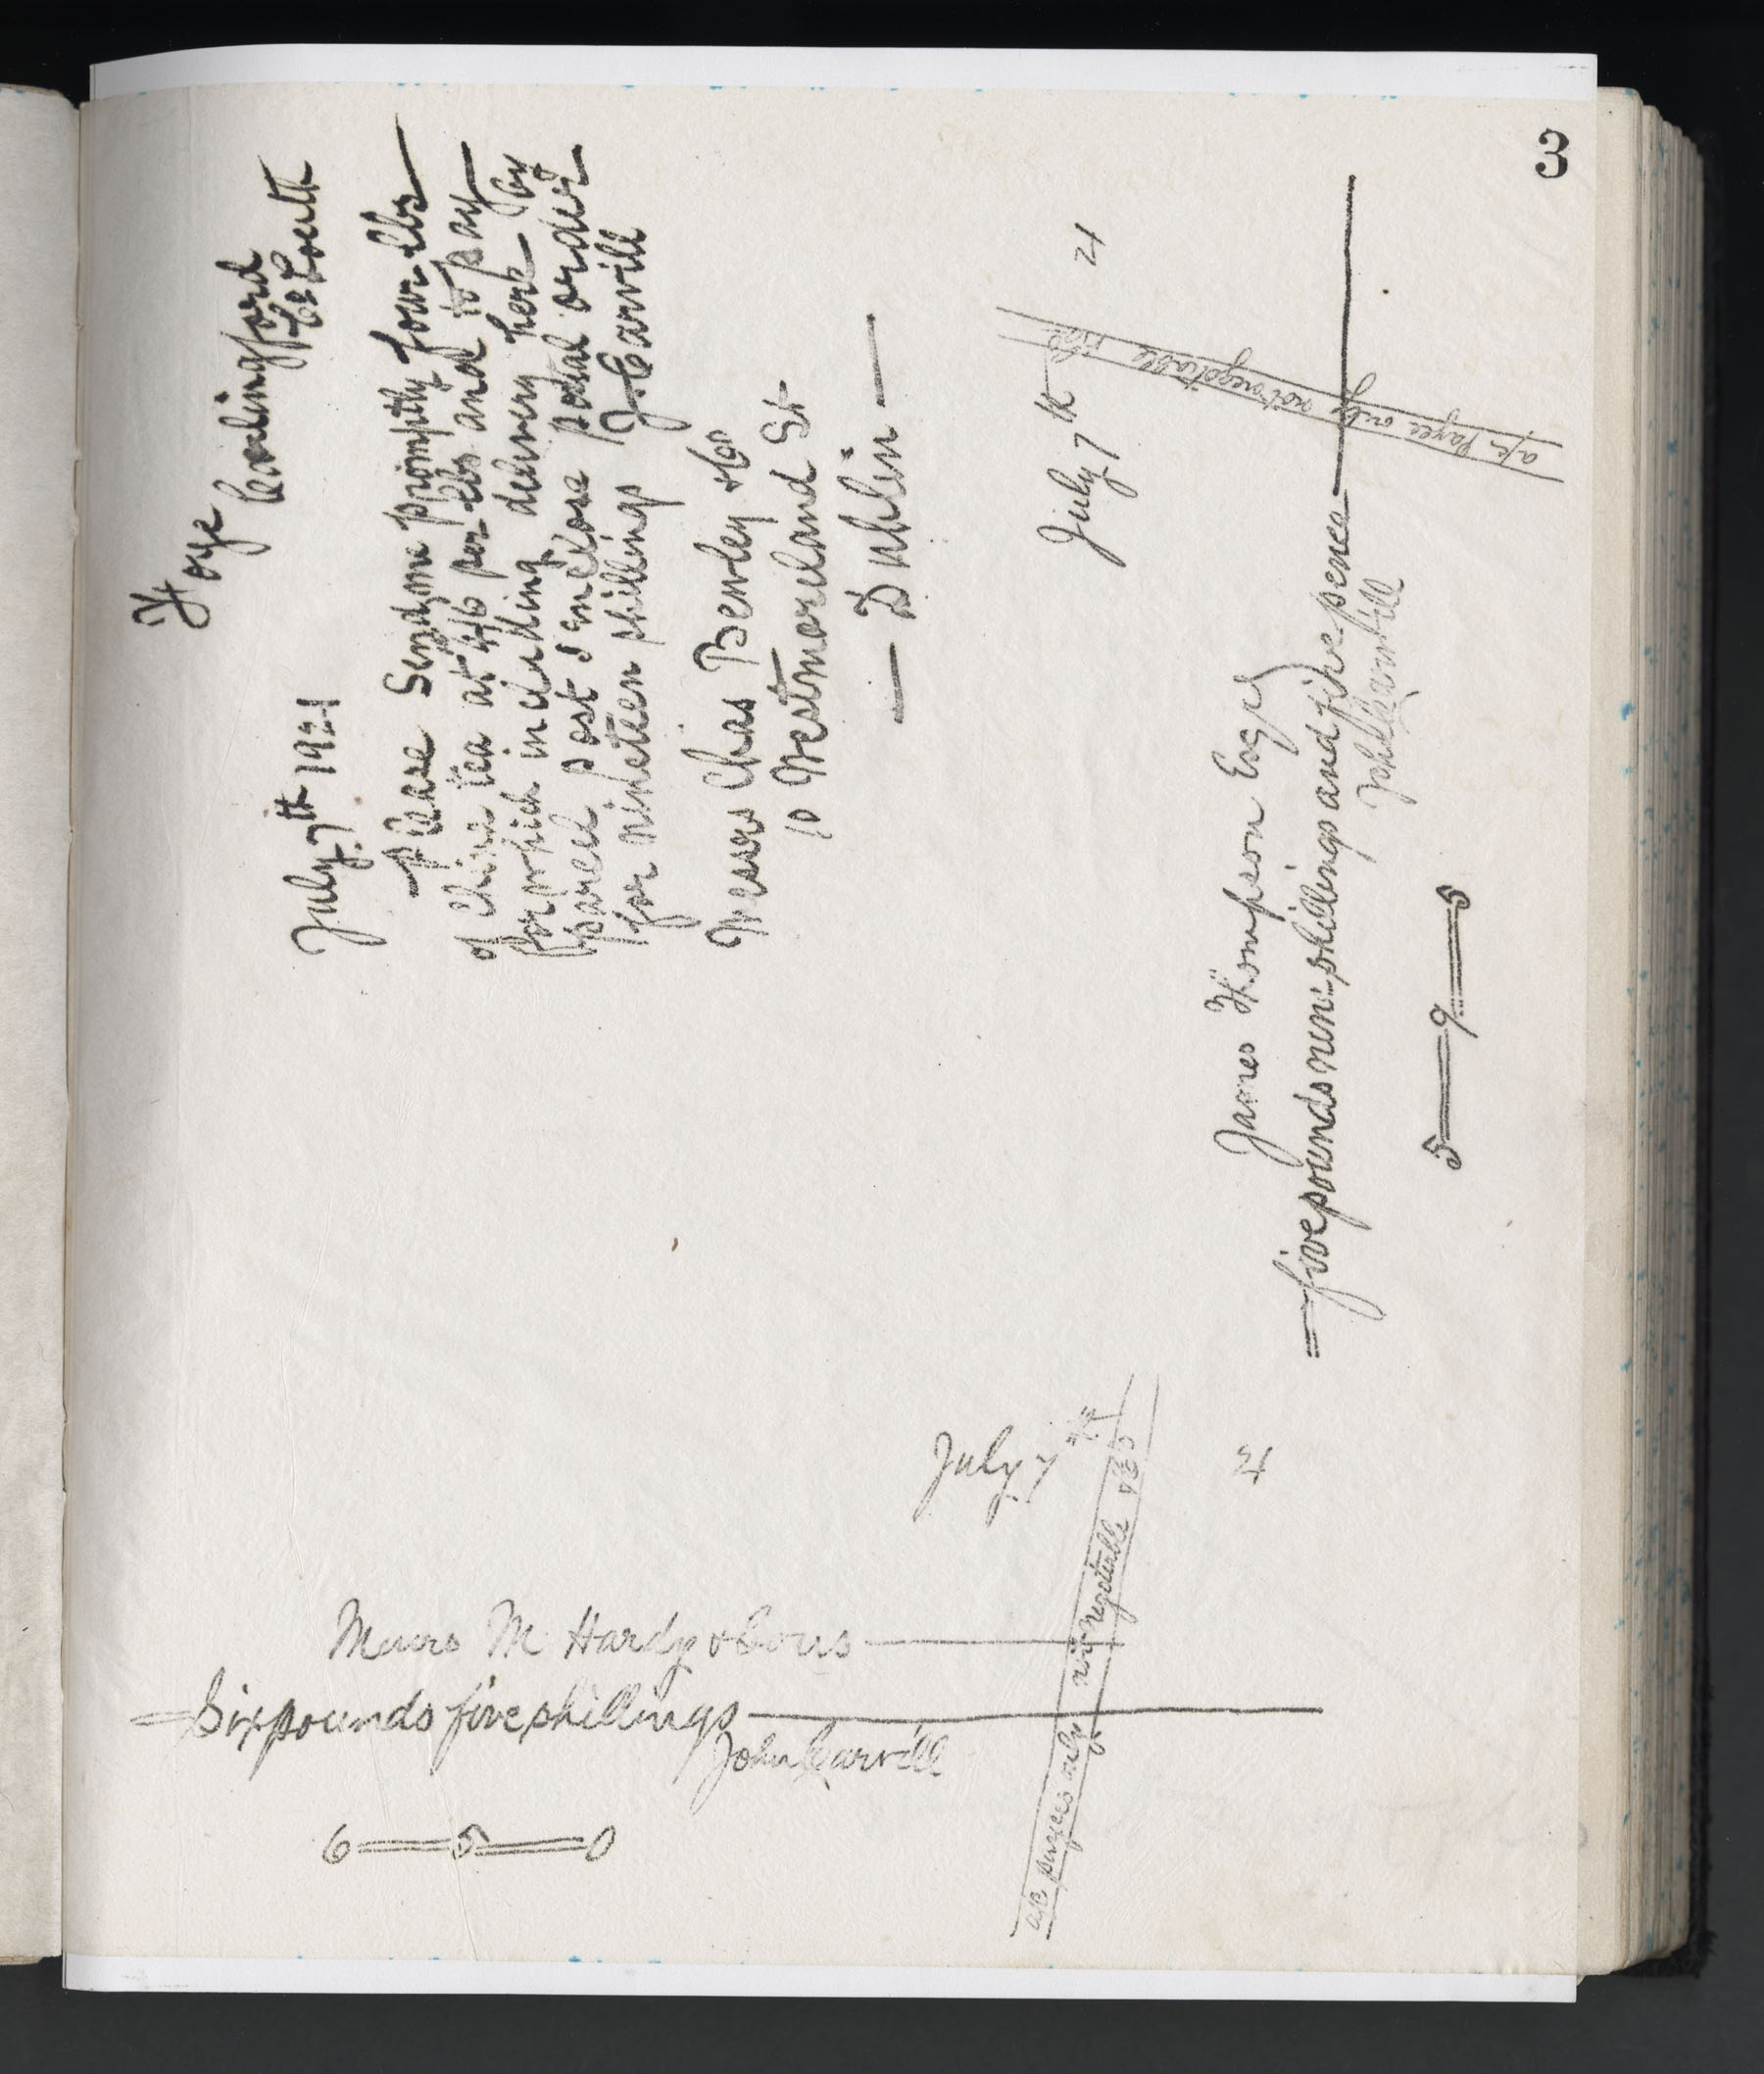 3
Foye
Carlingford
Co Louth
July 7th 1921
Please Send me promptly four lbs
of China tea at 4/6 per lbs and to pay
for which including delivery here by
parcel Post I enclose postal order
for nineteen shillings J Carvill
Messrs Chas Bewley & Co
10 Westmoreland St
Dublin
July 7th 21
a/c Payee only not negotiable
James Thompson Esqr
five pounds nine shillings and five pence
John Carvill
5 9 5
July 7th
21
a/c payees only not negotiable
Messrs M Hardy & Cous
Six pounds five shillings
John Carvill
6 5 0